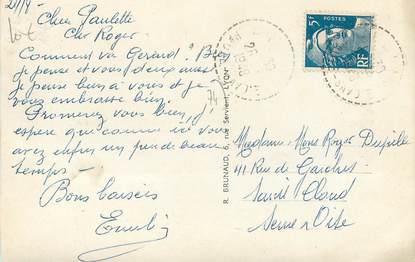 Chère Paulette
Cher Roger
Comment va Gérard ? Bien
je pense et vous deux aussi
je pense bien à vous et je
vous embrasse bien.
Promenez vous bien, j'
espère que comme ici vous
avez enfin un peu de beau
temps -
Bons baisers
R. BRUNAUD, 6, rue Servient, LYON
POSTES
5F
RF
Madame Mons Roger
41 Rue de Garches
Saint Cloud
Seine & Oise